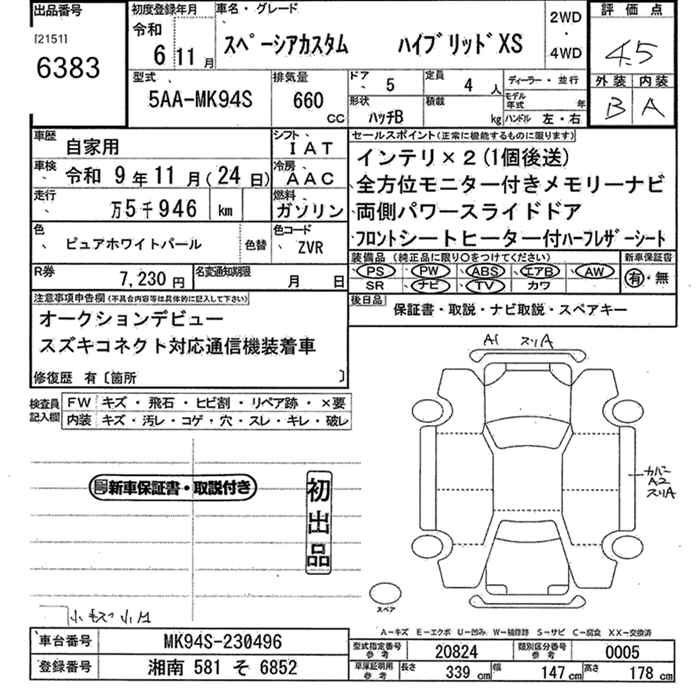 出品番号
[2151]
6383
初度登録年月
令和
6 11 月
車名・グレード
スペーシアカスタム ハイブリッドXS
2WD
・
4WD
評価点
4.5
外装 内装
B A
型式
5AA-MK94S
排気量
660 CC
ドア 5
形状 ハッチB
定員 4 人
積載 kg
ディーラー・並行
モデル年式 年
ハンドル 左・右
車歴 自家用
シフト IAT
車検 令和 9 年 11 月 (24 日)
冷房 AAC
走行 万 5 千 946 km
燃料 ガソリン
色 ピュアホワイトパール
色替
色コード ZVR
R券 7,230 円
名変通知期限 月 日
セールスポイント(正常に機能するものに限ります)
インテリ×2(1個後送)
全方位モニター付きメモリーナビ
両側パワースライドドア
フロントシートヒーター付ハーフレザーシート
装備品 (純正品に限り○をつけてください)
PS PW ABS エアB AW
SR ナビ TV カワ
新車保証書
有・無
後日品 保証書・取説・ナビ取説・スペアキー
注意事項申告欄(不具合内容等は具体的に記入して下さい)
オークションデビュー
スズキコネクト対応通信機装着車
修復歴 有〔箇所 〕
検査員記入欄
FW キズ・飛石・ヒビ割・リペア跡・×要
内装 キズ・汚レ・コゲ・穴・スレ・キレ・破レ
A1 スリA
新車保証書・取説付き
初出品
カバー
A2
スリA
スペア
A-キズ E-エクボ U-凹み W-補修跡 S-サビ C-腐食 XX-交換済
車台番号 MK94S-230496
登録番号 湘南 581 そ 6852
型式指定番号 参考 20824
類別区分番号 参考 0005
車庫証明用 参考 長さ 339 cm 幅 147 cm 高さ 178 cm